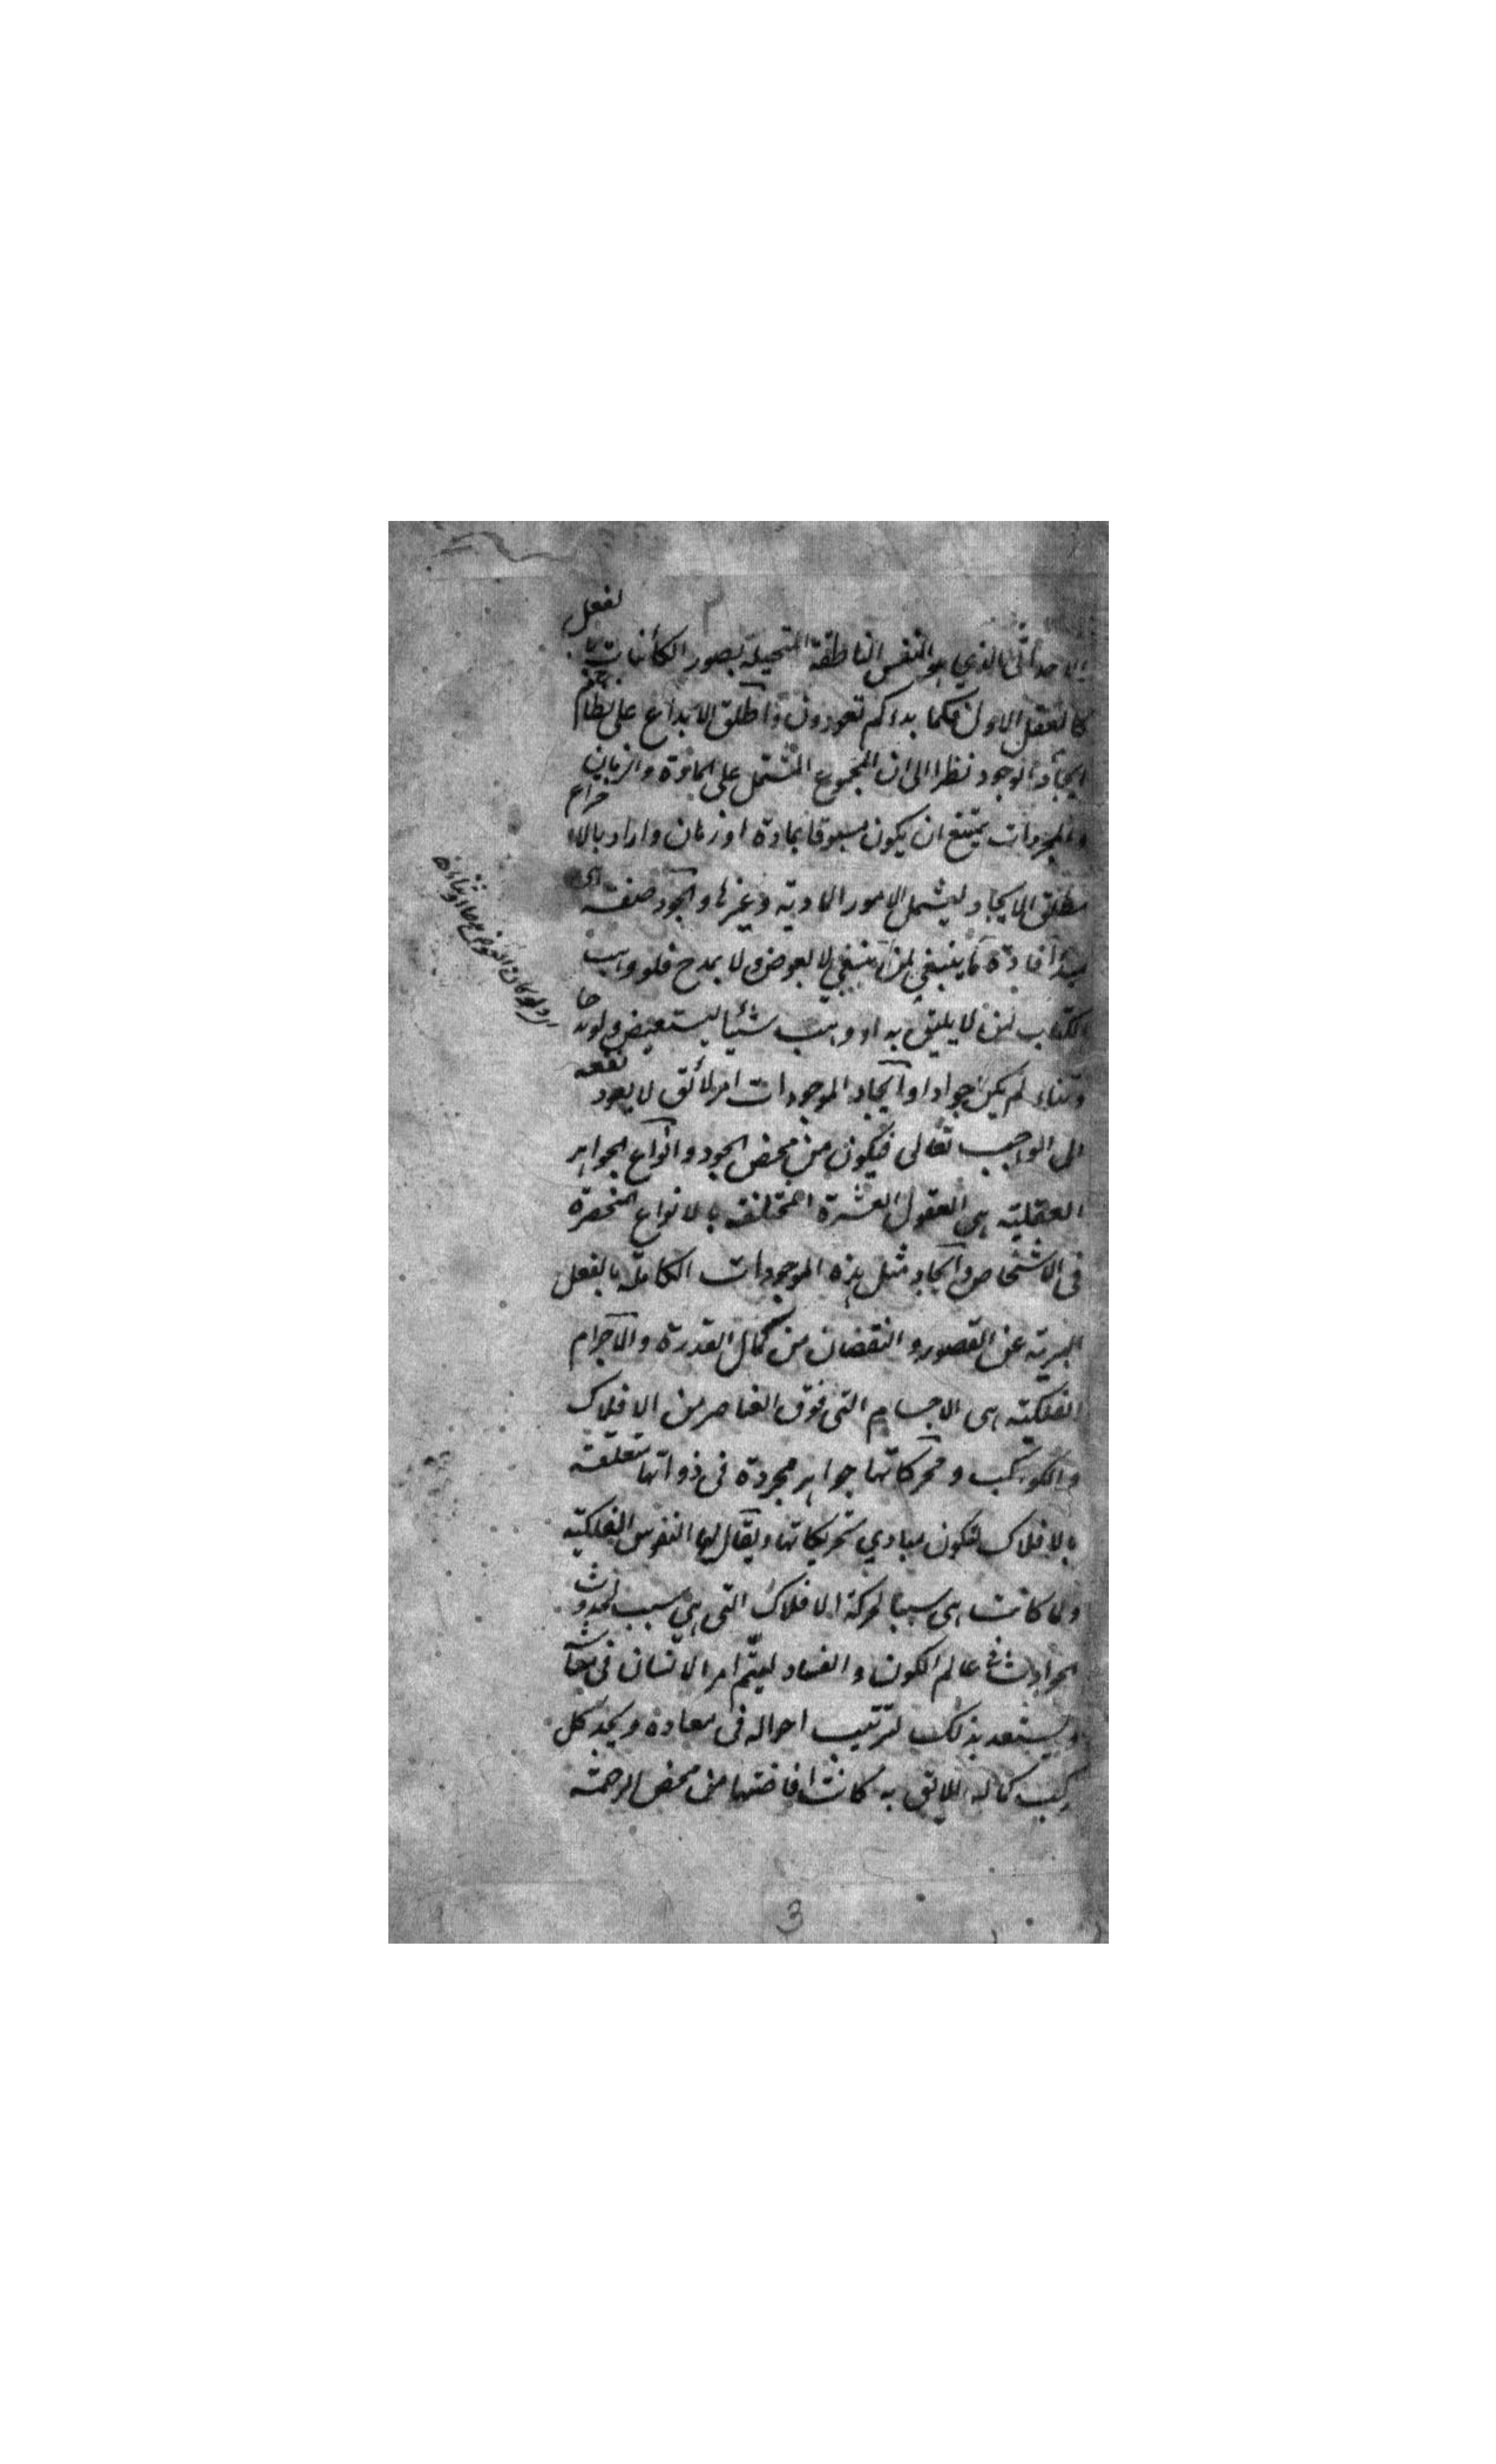 الذي هو النفس الناطقة المتخيلة بصور الكائنات بالفعل
كالعقل الاول فكما بداكم تعودون واطلق الابداع على نظام
ايجاد الوجود نظرا الى ان المجموع المشتمل على المادة والزمان
والمجردات يمتنع ان يكون مسبوقا بمادة او زمان واراد بالاختراع
مطلق الايجاد ليشمل الامور المادية وغيرها والجود صفة هى
مبدأ افادة ما ينبغي لمن ينبغي لا لعوض ولا لمدح فلو وهب
الكتاب لمن لا يليق به او وهب شيئا ليستعيض ولو مدحا
وثناء لم يكن جوادا وايجاد الموجودات امر لائق لا يعود نفعه
الى الواجب تعالى فيكون من محض الجود وانواع الجواهر
العقلية هى العقول العشرة المختلفة بالانواع المنحصرة
فى الاشخاص وايجاد مثل هذه الموجودات الكاملة بالفعل
البرية عن القصور والنقصان من كمال القدرة والاجرام
الفلكية هى الاجسام التى فوق العناصر من الافلاك
والكواكب ومحركاتها جواهر مجردة فى ذواتها متعلقة
بالافلاك لتكون مبادي تحريكاتها ويقال لها النفوس الفلكية
ولما كانت هى سببا لحركة الافلاك التى هى سبب لحدوث
الحوادث فى عالم الكون والفساد ليتم امر الانسان فى معاشه
ويستعد بذلك لترتيب احواله فى معاده ويجد كل
مركب كماله اللائق به كانت افاضتها من محض الرحمة
اى ولو كان العوض مدحا او ثناء
3